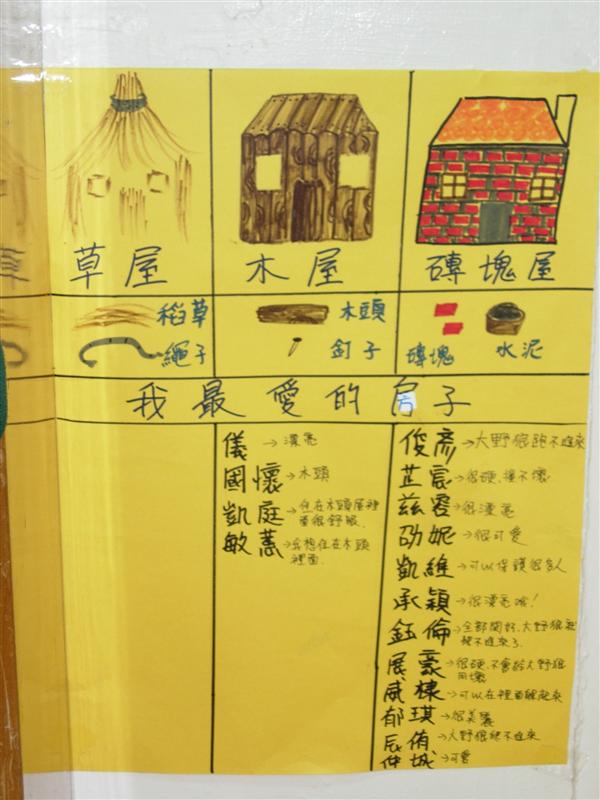 草屋 木屋 磚塊屋
稻草 木頭
繩子 釘子 磚塊 水泥
我最愛的房子
儀 →漂亮
國懷 →木頭
凱庭 →住在木頭屋裡
面很舒服.
敏蕙 →我想住在木頭
裡面.
俊彥 →大野狼跑不進來
芷宸 →很硬,撞不壞
茲容 →很漂亮
劭妮 →很可愛
凱維 →可以保護很多人
承穎 →很漂亮哈!
鈺倫 →全部關好,大野狼就
爬不進來了.
展豪 →很硬,不會給大野狼
用壞
威棣 →可以在裡面躲起來
郁琪 →很美麗
辰侑 →大野狼爬不進來
仲城 →可愛